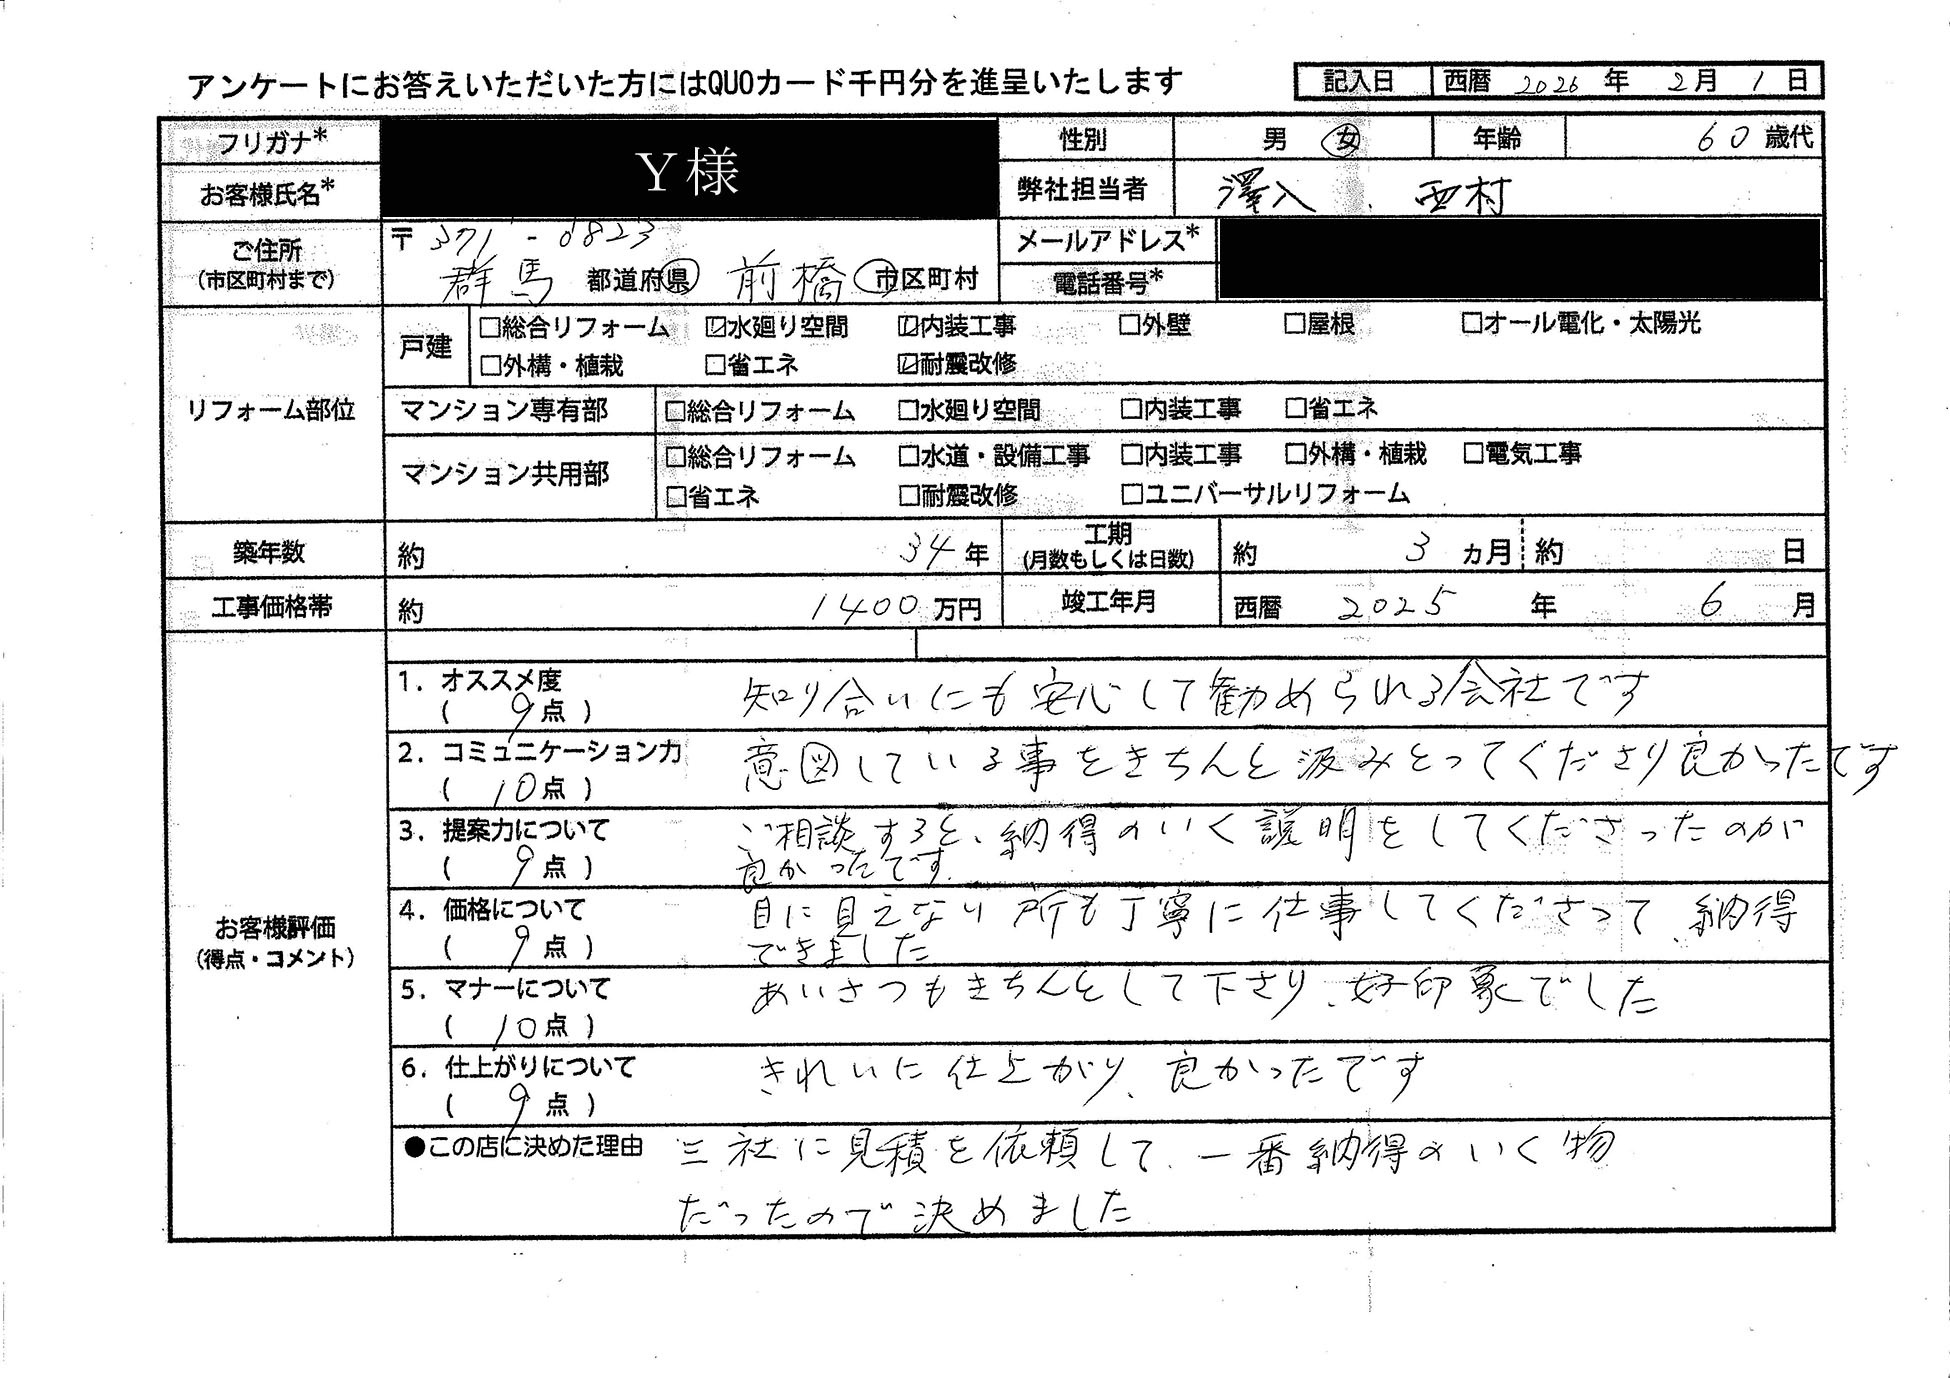 アンケートにお答えいただいた方にはQUOカード千円分を進呈いたします
記入日 西暦 2026 年 2月 1日
フリガナ* Y様 性別 男 女 年齢 60歳代
お客様氏名* 弊社担当者 澤入、西村
ご住所 (市区町村まで) 〒371-0823 メールアドレス*
群馬 都道府県 前橋 市区町村 電話番号*
リフォーム部位
戸建 □総合リフォーム ☑水廻り空間 ☑内装工事 □外壁 □屋根 □オール電化・太陽光
□外構・植栽 □省エネ ☑耐震改修
マンション専有部 □総合リフォーム □水廻り空間 □内装工事 □省エネ
マンション共用部 □総合リフォーム □水道・設備工事 □内装工事 □外構・植栽 □電気工事
□省エネ □耐震改修 □ユニバーサルリフォーム
築年数 約 34年 工期 (月数もしくは日数) 約 3ヵ月 約 日
工事価格帯 約 1400万円 竣工年月 西暦 2025 年 6 月
お客様評価
(得点・コメント)
1. オススメ度 知り合いにも安心して勧められる会社です
( 9点 )
2. コミュニケーション力 意図している事をきちんと汲みとってくださり良かったです
( 10点 )
3. 提案力について ご相談すると、納得のいく説明をしてくださったのが
( 9点 ) 良かったです.
4. 価格について 目に見えない所も丁寧に仕事してくださって、納得
( 9点 ) できました
5. マナーについて あいさつもきちんとして下さり、好印象でした
( 10点 )
6. 仕上がりについて きれいに仕上がり、良かったです
( 9点 )
●この店に決めた理由 三社に見積を依頼して、一番納得のいく物
だったので決めました